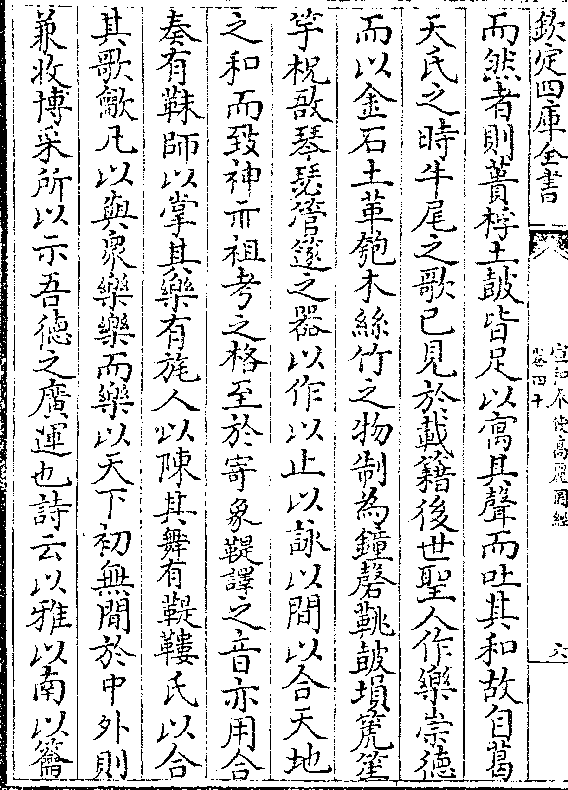 欽定四庫全書
宣和奉使高麗圖經
卷四十
六
而然者則蕢桴土鼓皆足以寓其聲而吐其和故自葛
天氏之時牛尾之歌已見於載籍後世聖人作樂崇德
而以金石土革匏木絲竹之物制為鐘磬鞉鼓塤箎笙
竽柷敔琴瑟管籧之器以作以止以詠以間以合天地
之和而致神示祖考之格至於寄象鞮譯之音亦用合
奏有韎師以掌其樂有旄人以陳其舞有鞮鞻氏以合
其歌龡凡以與衆樂樂而樂以天下初無間於中外則
兼收博采所以示吾德之廣運也詩云以雅以南以籥